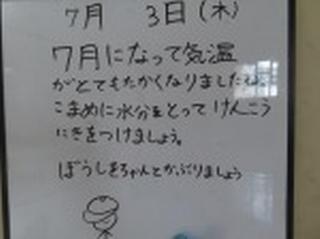 7月 3日(木)
7月になって気温
がとてもたかくなりましたね。
こまめに水分をとって けんこう
にきをつけましょう。
ぼうしをちゃんとかぶりましょう